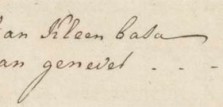 an Kleen bala
an genevel . . -